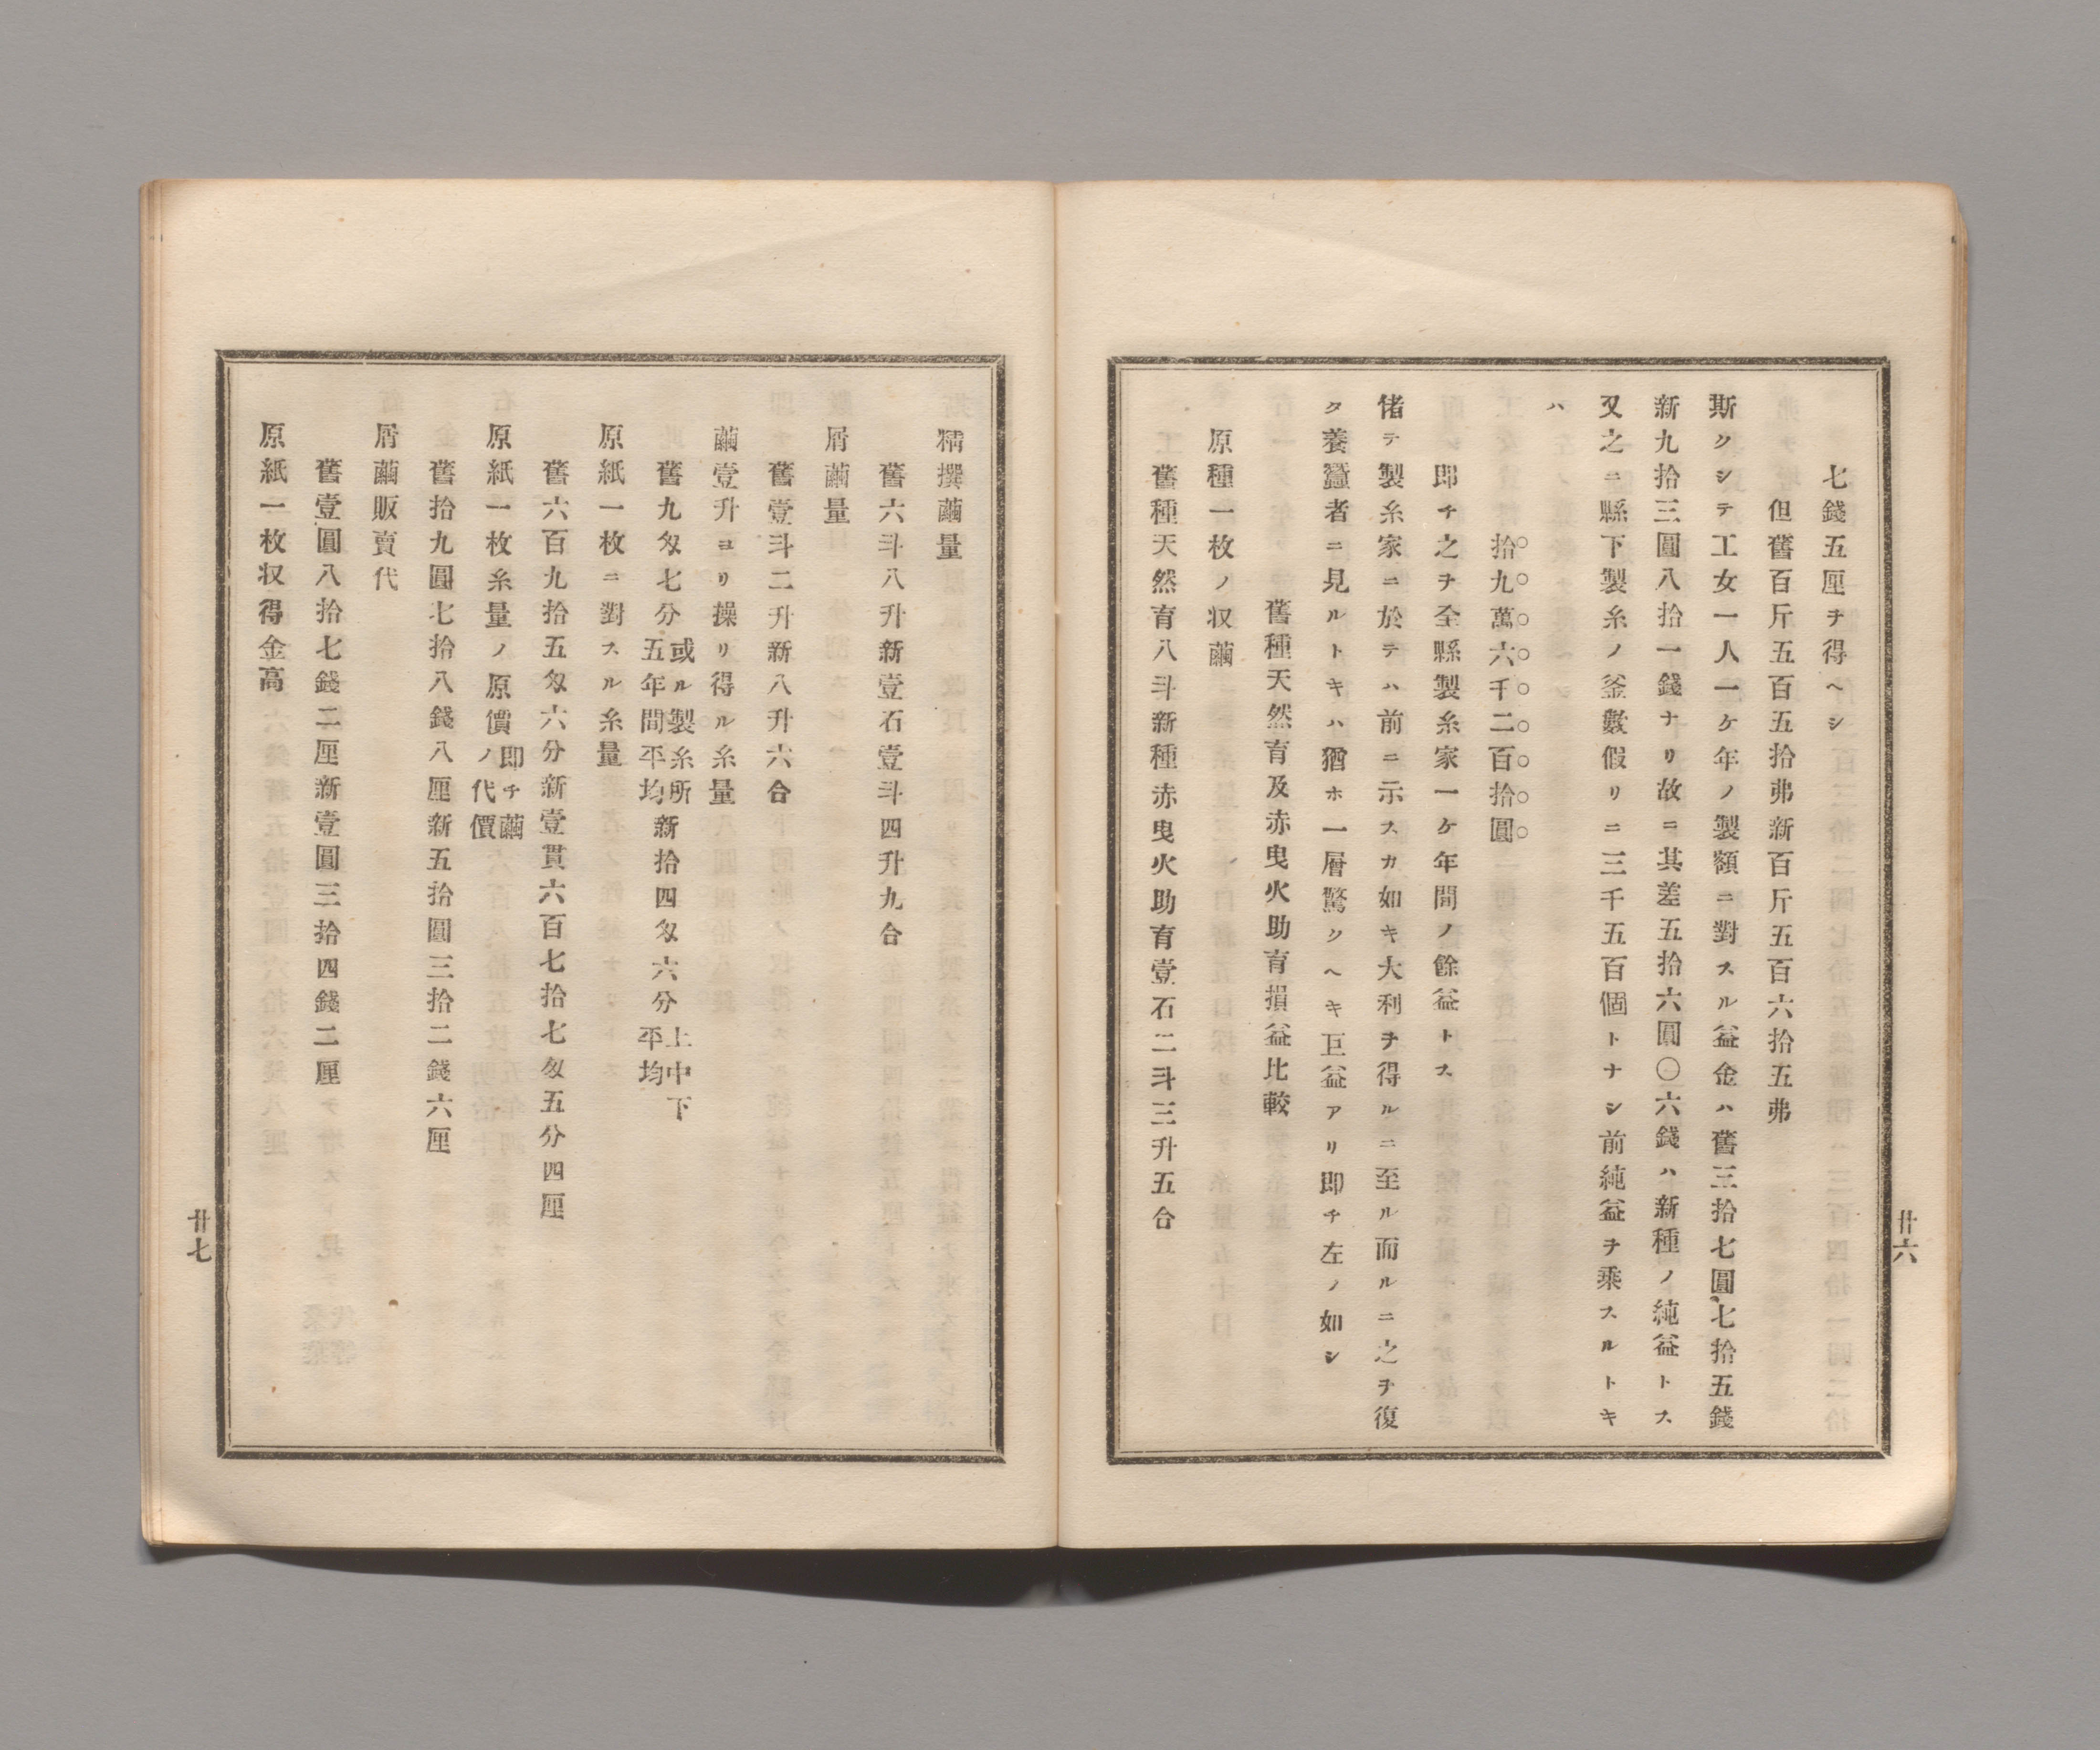 七錢五厘ヲ得ヘシ
但舊百斤五百五拾弗新百斤五百六拾五弗
斯クシテ工女一人一ケ年ノ製額ニ對スル益金ハ舊三拾七圓七拾五錢
新九拾三圓八拾一錢ナリ故ニ其差五拾六圓〇六錢ハ新種ノ純益トス
又之ニ縣下製糸ノ釜數假リニ三千五百個トナシ前純益ヲ乘スルトキ
ハ
拾九萬六千二百拾圓
即チ之ヲ全縣製糸家一ケ年間ノ餘益トス
偖テ製糸家ニ於テハ前ニ示スカ如キ大利ヲ得ルニ至ル而ルニ之ヲ復
タ養蠶者ニ見ルトキハ猶ホ一層驚クヘキ巨益アリ即チ左ノ如シ
舊種天然育及赤曳火助育損益比較
原種一枚ノ収繭
舊種天然育八斗新種赤曳火助育壹石二斗三升五合
廿六
精撰繭量
舊六斗八升新壹石壹斗四升九合
屑繭量
舊壹斗二升新八升六合
繭壹升ヨリ操リ得ル糸量
舊九匁七分或ル製糸所五年間平均新拾四匁六分上中下平均
原紙一枚ニ對スル糸量
舊六百九拾五匁六分新壹貫六百七拾七匁五分四厘
原紙一枚糸量ノ原價即チ繭ノ代價
舊拾九圓七拾八錢八厘新五拾圓三拾二錢六厘
屑繭販賣代
舊壹圓八拾七錢二厘新壹圓三拾四錢二厘
原紙一枚収得金高
廿七